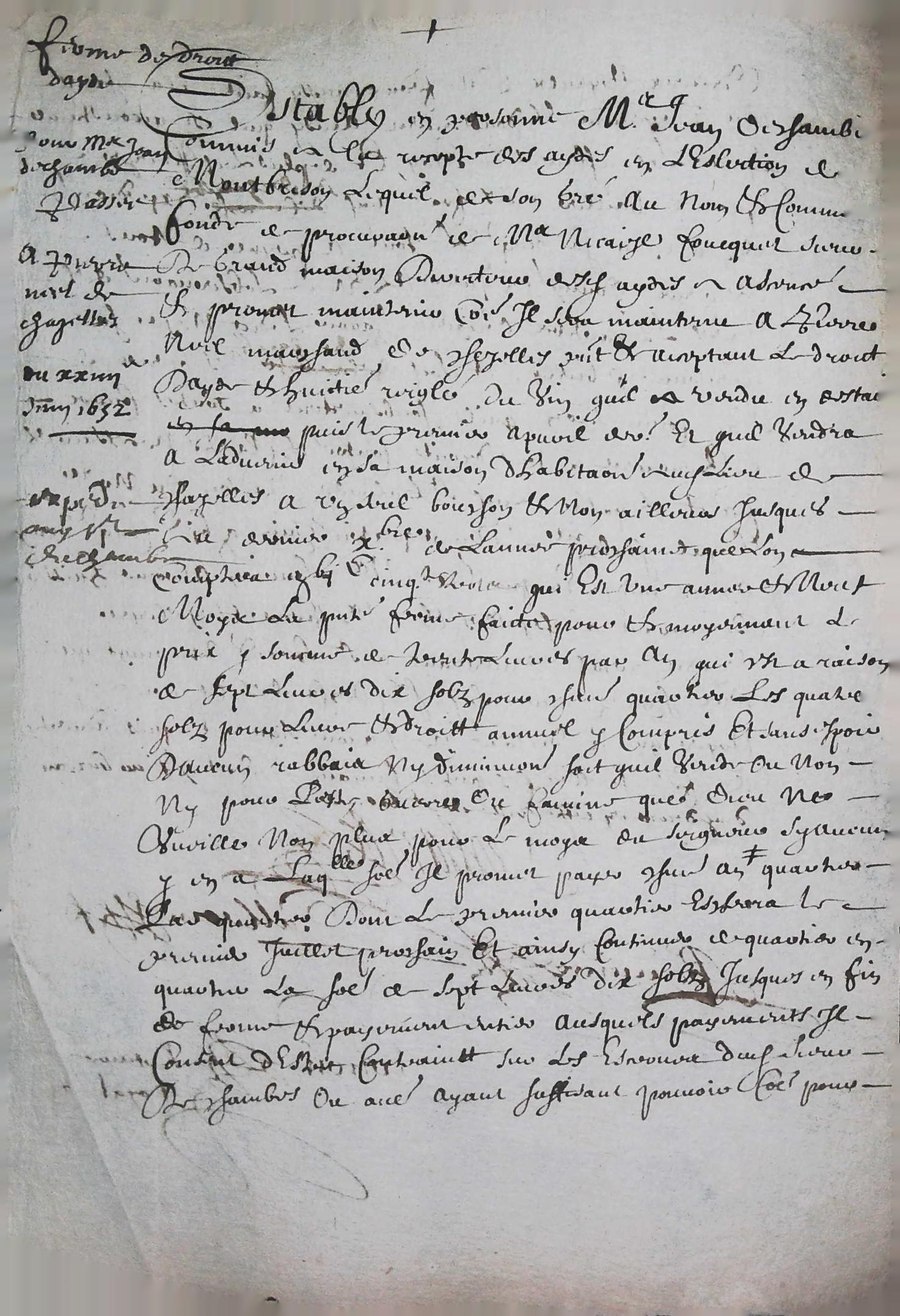 ferme de droit
dayde
pour Mre Jean
dechambe
passée
A pierre
niel de
chazelles
du xxiiii
Juin 1652
Estably en personne Mre Jean Dechambe
Commis a la recepte des aydes en Leslection de
Montbrison Lequel de son gré au Nom & Comme
fondé de procuration de Mre Nicaise foucquet sieur
De Grand maison Directeur desd aydes a Ascencé
& promet maintenir Coe Il sera maintenu A Pierre
Niel marchand de chazelles pnt & aceptant Le droit
Dayde & huitie reiglé Du Vin quil a vendu en destail
puis le premier apvril der. Et quil vendra
A Ladvenir en sa maison Dhabitaon aud Lieu de
chazelles a un seul bouchon & Non ailleurs Jusques
au dernier xbre de Lannée prochaine que Lon
Comptera gbi cinqte trois qui Est Une année & Neuf
Moys La pnte ferme faicte pour & moyennant Le
prix & somme de trente Livres par An qui est a raison
de sept Livres dix solz pour chun quartier Les quatre
solz pour Livre & droitt annuel y Compris Et sans espoir
Daucun rabbais Ny diminuon soit quil Vende Ou Non
Ny pour Peste guerre Ou famine que Dieu Ne
Veuille Non plus pour Le moys du seigneur sy aucun
y en a Laqlle soe Il promet payer chun An quartier
Par quartier Dont Le premier quartier Eschera le
premier Juillet prochain Et ainsy Continuer de quartier en
quartier La soe de sept Livres dix solz Jusques en fin
de ferme & payement entier Ausquels payements Il
Consent dEstre Contraintt sur Les Escroues dud sieur
De chambes Ou aue ayant suffisant pouvoir Coe pour